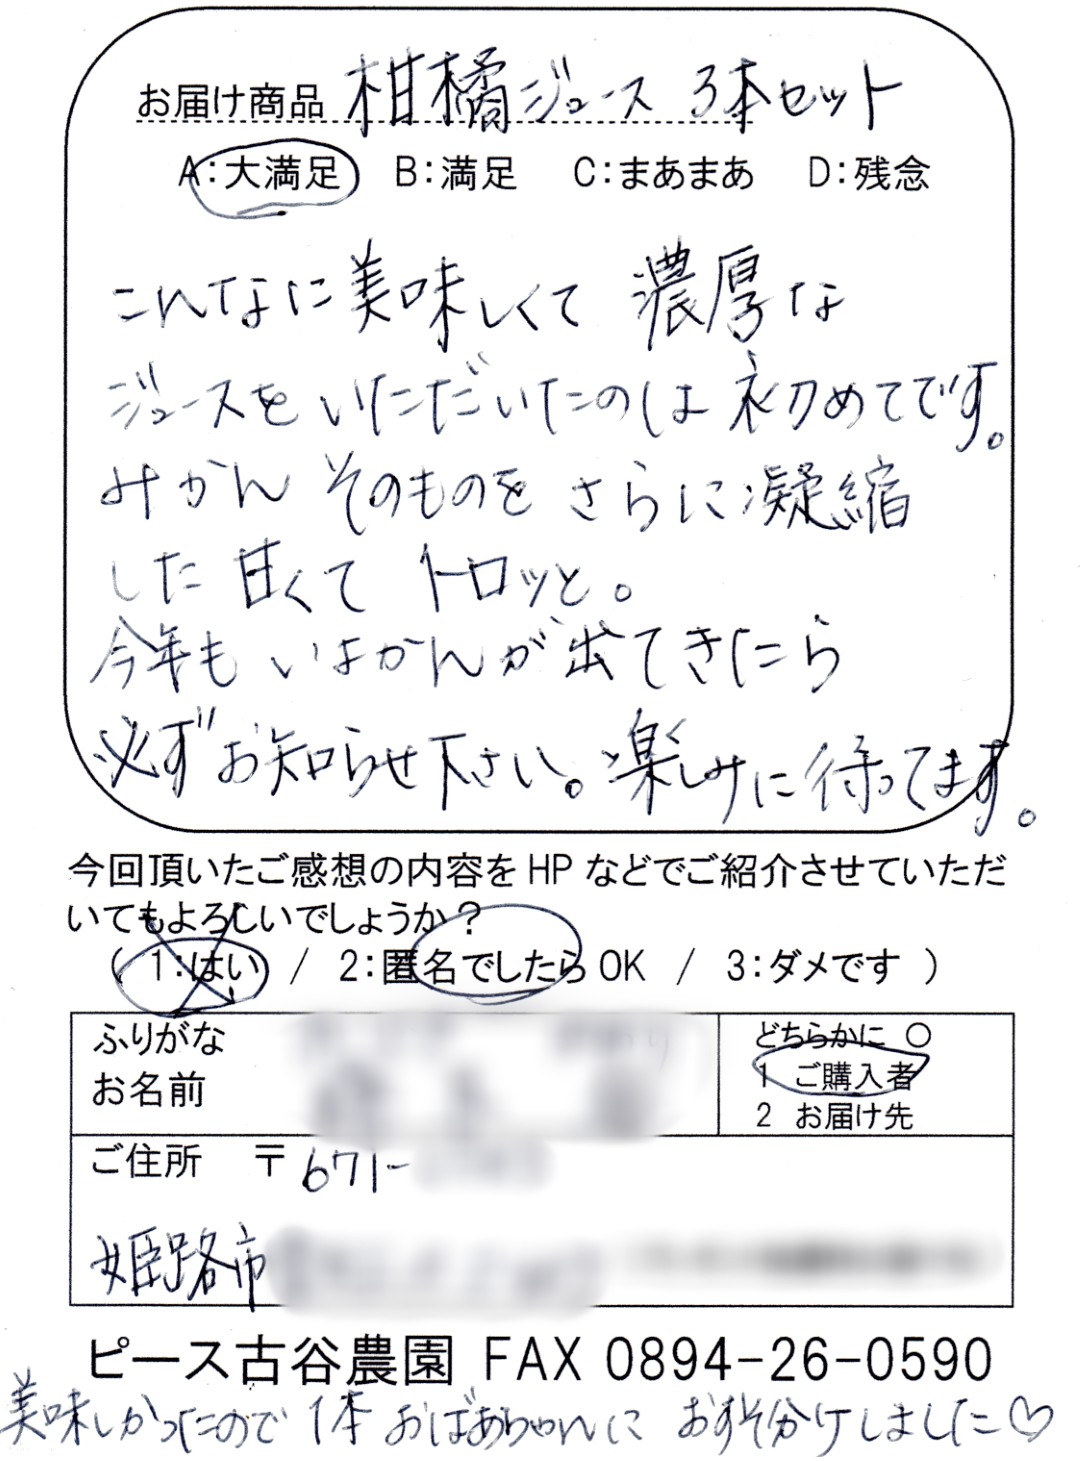 お届け商品 柑橘ジュース 3本セット
A:大満足 B:満足 C:まあまあ D:残念
こんなに美味しくて 濃厚な
ジュースをいただいたのは 初めてです。
みかん そのものを さらに凝縮
した 甘くて トロッと。
今年も いよかんが 出てきたら
必ず お知らせ下さい。楽しみに待ってます。
今回頂いたご感想の内容をHPなどでご紹介させていただ
いてもよろしいでしょうか?
( 1:はい / 2:匿名でしたらOK / 3:ダメです )
ふりがな
お名前
どちらかに ○
1 ご購入者
2 お届け先
ご住所 〒671-
姫路市
ピース古谷農園 FAX 0894-26-0590
美味しかったので 1本 おばあちゃんに おすそ分けしました♡